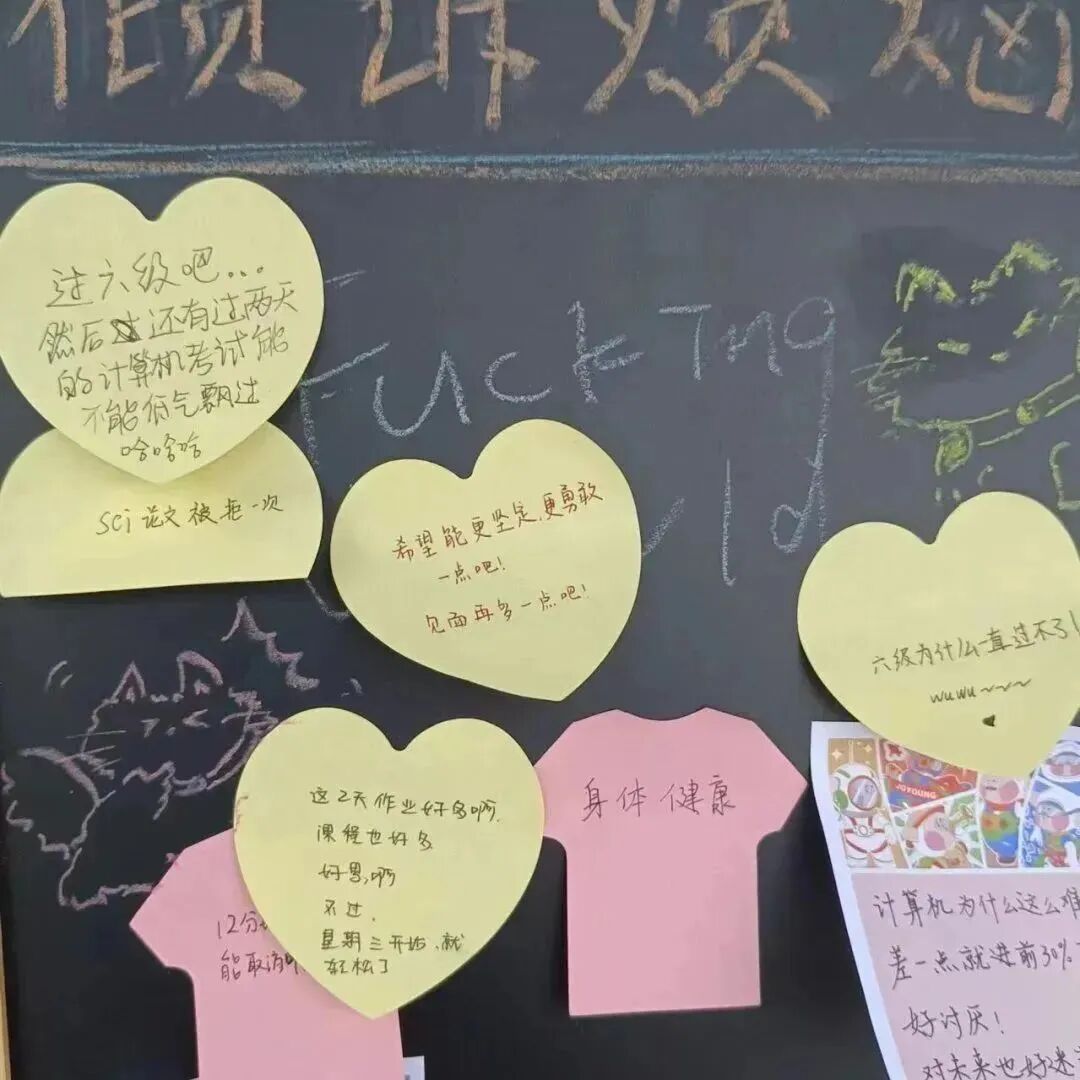 倾诉烦恼
过六级吧...
然后还有过两天
的计算机考试能
不能低气飘过
哈哈哈
sci论文被拒一次
Fuck
希望能更坚定,更勇敢
一点吧!
见面再多一点吧!
六级为什么一直过不了!
wuwu~~~
这2天作业好多啊,
课程也好多
好累啊
不过,
星期三开始,就
轻松了
12分
能取消
身体健康
JOYOUNG
计算机为什么这么难
差一点就进前30%
好讨厌!
对未来也好迷